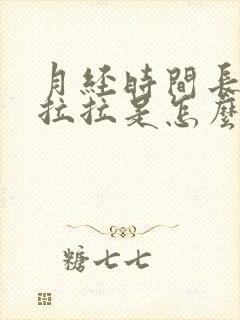 月经時間長
拉拉是怎麼
糖七七